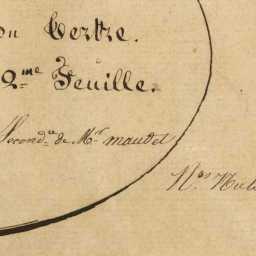 du Tertre.
2me Feuille.
Secondn de Mr maudet
Nos